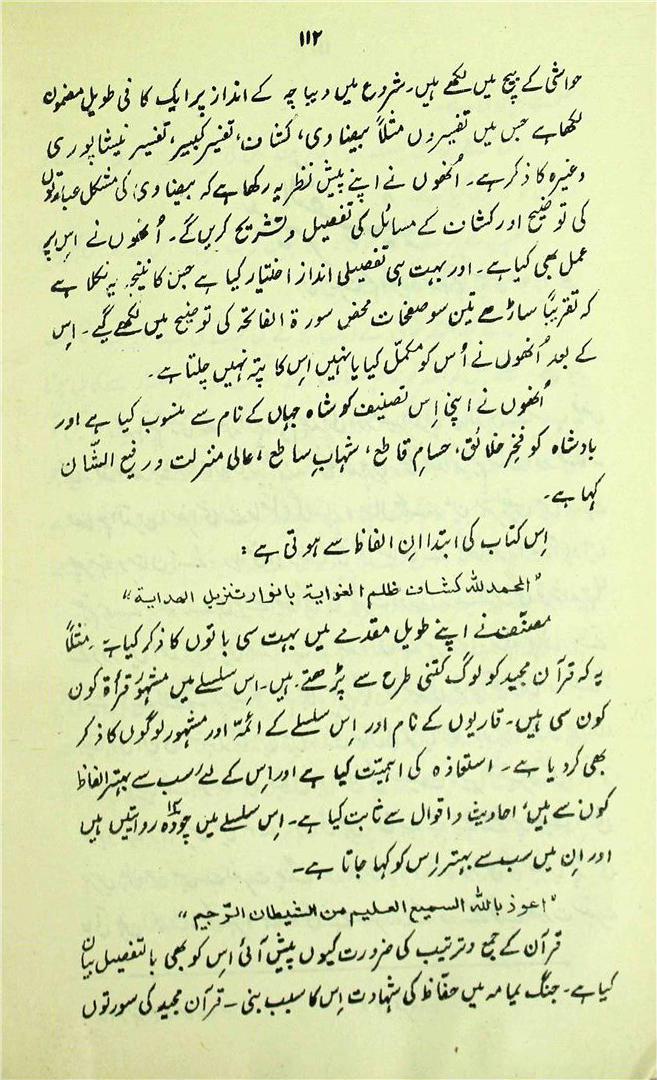 ۱۱۲
حواشی کے بیچ میں لکھے ہیں۔ شروع میں دیباچہ کے انداز پر ایک کافی طویل مضمون
لکھا ہے جس میں تفسیروں مثلاً بیضاوی، کشاف، تفسیر کبیر، تفسیر نیشاپوری
وغیرہ کا ذکر ہے۔ اُنھوں نے اپنے پیش نظر یہ رکھا ہے کہ بیضاوی کی مشکل عبارتوں
کی توضیح اور کشاف کے مسائل کی تفصیل و تشریح کریں گے۔ اُنھوں نے اِس پر
عمل بھی کیا ہے۔ اور بہت ہی تفصیلی انداز اختیار کیا ہے جس کا نتیجہ یہ نکلا ہے
کہ تقریباً ساڑھے تین سو صفحات محض سورۃ الفاتحہ کی توضیح میں لکھے گیے۔ اِس
کے بعد اُنھوں نے اُس کو مکمّل کیا یا نہیں اِس کا پتہ نہیں چلتا ہے۔
اُنھوں نے اپنی اِس تصنیف کو شاہ جہاں کے نام سے منسوب کیا ہے اور
بادشاہ کو فخرِ خلائق، حسامِ قاطع، شہابِ ساطع، عالی منزلت و رفیع الشّان
کہا ہے۔
اِس کتاب کی ابتدا اِن الفاظ سے ہوتی ہے:
"الحمد للہ کشاف ظلم الغوایة بانوار تنزیل الھدایة"
مصنّف نے اپنے طویل مقدمے میں بہت سی باتوں کا ذکر کیا ہے۔ مثلاً
یہ کہ قرآن مجید کو لوگ کتنی طرح سے پڑھتے ہیں۔ اس سلسلے میں مشہور قرأۃ کون
کون سی ہیں۔ قاریوں کے نام اور اِس سلسلے کے ائمّہ اور مشہور لوگوں کا ذکر
بھی کر دیا ہے۔ استعاذہ کی اہمیّت کیا ہے اور اِس کے لیے سب سے بہتر الفاظ
کون سے ہیں، احادیث و اقوال سے ثابت کیا ہے۔ اِس سلسلے میں چودہ ۱۴ روایتیں ہیں
اور اِن میں سب سے بہتر اِس کو کہا جاتا ہے۔
"اعوذ باللہ السمیع العلیم من الشیطان الرّجیم"
قرآن کے جمع و ترتیب کی ضرورت کیوں پیش آئی اِس کو بھی بالتفصیل بیان
کیا ہے۔ جنگ یمامہ میں حفّاظ کی شہادت اِس کا سبب بنی۔ قرآن مجید کی سورتوں